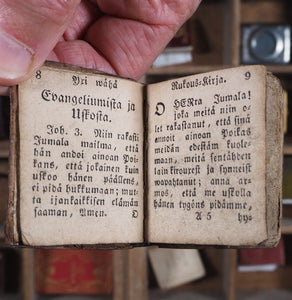 8 Yxi wähä
Evangeliumista ja
Uskosta.
Joh. 3. Niin rakasti
Jumala mailma, että
hän andoi ainoan Poi-
kans, että jokainen kuin
uskoo hänen päällens,
ei pidä hukkuman; mut-
ta ijankaikkisen elämän
saaman, Amen. O
Rukous-Kirja. 9
O HERra Jumala!
joka meitä niin o-
let rakastanut, että sinä
annoit ainoan Poikas
meidän edestäm kuole-
maan, meitä sentähden
lain kirouxest ja synneist
wapahtanut; anna ar-
mos, että me uskolla
hänen työgöns pidämme,
A 5 hy-